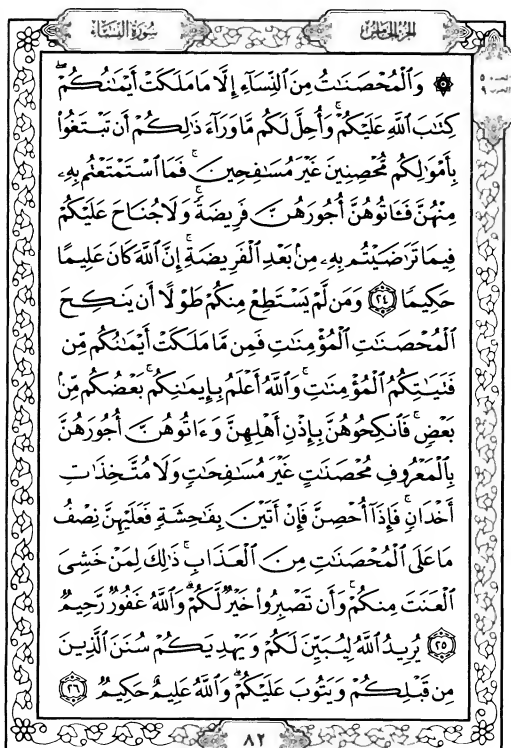 سُورَةُ النِّسَاءِ
الجُزْءُ الخَامِسُ
۞ وَٱلْمُحْصَنَـٰتُ مِنَ ٱلنِّسَآءِ إِلَّا مَا مَلَكَتْ أَيْمَـٰنُكُمْ ۖ
كِتَـٰبَ ٱللَّهِ عَلَيْكُمْ ۚ وَأُحِلَّ لَكُم مَّا وَرَآءَ ذَٰلِكُمْ أَن تَبْتَغُوا۟
بِأَمْوَٰلِكُم مُّحْصِنِينَ غَيْرَ مُسَـٰفِحِينَ ۚ فَمَا ٱسْتَمْتَعْتُم بِهِۦ
مِنْهُنَّ فَـَٔاتُوهُنَّ أُجُورَهُنَّ فَرِيضَةً ۚ وَلَا جُنَاحَ عَلَيْكُمْ
فِيمَا تَرَٰضَيْتُم بِهِۦ مِنۢ بَعْدِ ٱلْفَرِيضَةِ ۚ إِنَّ ٱللَّهَ كَانَ عَلِيمًا
حَكِيمًا ٢٤ وَمَن لَّمْ يَسْتَطِعْ مِنكُمْ طَوْلًا أَن يَنكِحَ
ٱلْمُحْصَنَـٰتِ ٱلْمُؤْمِنَـٰتِ فَمِن مَّا مَلَكَتْ أَيْمَـٰنُكُم مِّن
فَتَيَـٰتِكُمُ ٱلْمُؤْمِنَـٰتِ ۚ وَٱللَّهُ أَعْلَمُ بِإِيمَـٰنِكُم ۚ بَعْضُكُم مِّنۢ
بَعْضٍ ۚ فَٱنكِحُوهُنَّ بِإِذْنِ أَهْلِهِنَّ وَءَاتُوهُنَّ أُجُورَهُنَّ
بِٱلْمَعْرُوفِ مُحْصَنَـٰتٍ غَيْرَ مُسَـٰفِحَـٰتٍ وَلَا مُتَّخِذَٰتِ
أَخْدَانٍ ۚ فَإِذَآ أُحْصِنَّ فَإِنْ أَتَيْنَ بِفَـٰحِشَةٍ فَعَلَيْهِنَّ نِصْفُ
مَا عَلَى ٱلْمُحْصَنَـٰتِ مِنَ ٱلْعَذَابِ ۚ ذَٰلِكَ لِمَنْ خَشِىَ
ٱلْعَنَتَ مِنكُمْ ۚ وَأَن تَصْبِرُوا۟ خَيْرٌ لَّكُمْ ۗ وَٱللَّهُ غَفُورٌ رَّحِيمٌ
٢٥ يُرِيدُ ٱللَّهُ لِيُبَيِّنَ لَكُمْ وَيَهْدِيَكُمْ سُنَنَ ٱلَّذِينَ
مِن قَبْلِكُمْ وَيَتُوبَ عَلَيْكُمْ ۗ وَٱللَّهُ عَلِيمٌ حَكِيمٌ ٢٦
٨٢